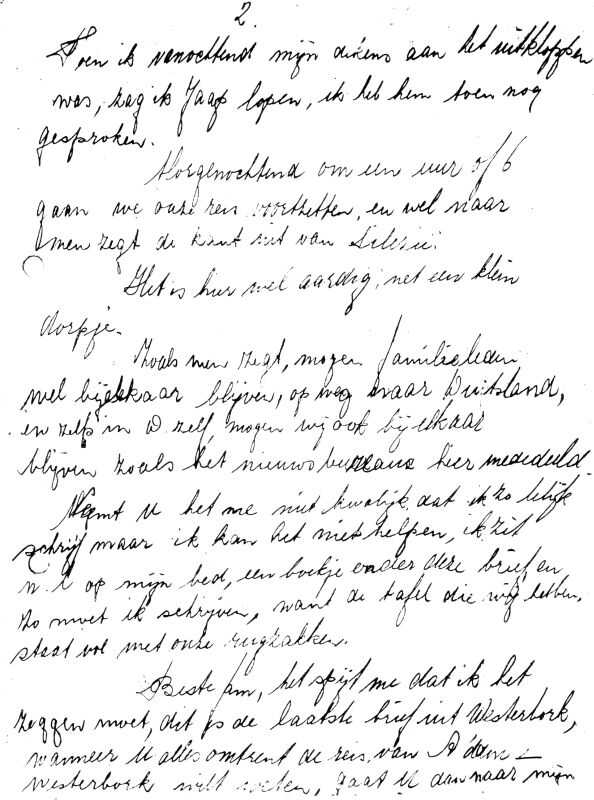 2.
Toen ik vanochtend mijn dekens aan het uitkloppen
was, zag ik Jaap lopen, ik heb hem toen nog
gesproken.
Morgenochtend om een uur of 6
gaan we onze reis voortzetten, en wel naar
men zegt de kant uit van Silezië.
Het is hier wel aardig, net een klein
dorpje.
Zoals men zegt, mogen familieleden
wel bijelkaar blijven, op weg naar Duitsland,
en zelfs in D zelf, mogen wij ook bij elkaar
blijven zoals het nieuwsbureau hier mededeeld
Neemt U het me niet kwalijk dat ik zo lelijk
schrijf maar ik kan het niet helpen, ik zit
n.l op mijn bed, een boekje onder deze brief, en
zo moet ik schrijven, want de tafel die wij hebben,
staat vol met onze rugzakken.
Beste, het spijt me dat ik het
zeggen moet, dit is de laatste brief uit Westerbork,
wanneer U alles omtrent de reis van A'dam –
Westerbork wilt weten, gaat U dan naar mijn